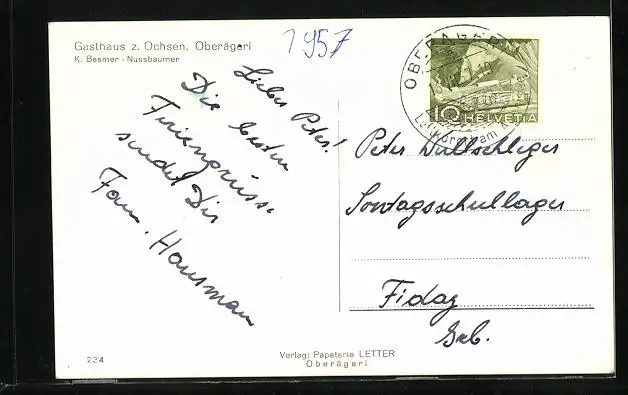 Gasthaus z. Ochsen, Oberägeri
K. Besmer - Nussbaumer
1957
OBERÄGERI
10 HELVETIA
Luftkurort am
Lieber Peter!
Die besten
Feriengrüsse
sendet Dir
Fam. Hausmann
Peter Wullschleger
Sontagsschullager
Fidaz
Grb.
234
Verlag: Papeterie LETTER
Oberägeri